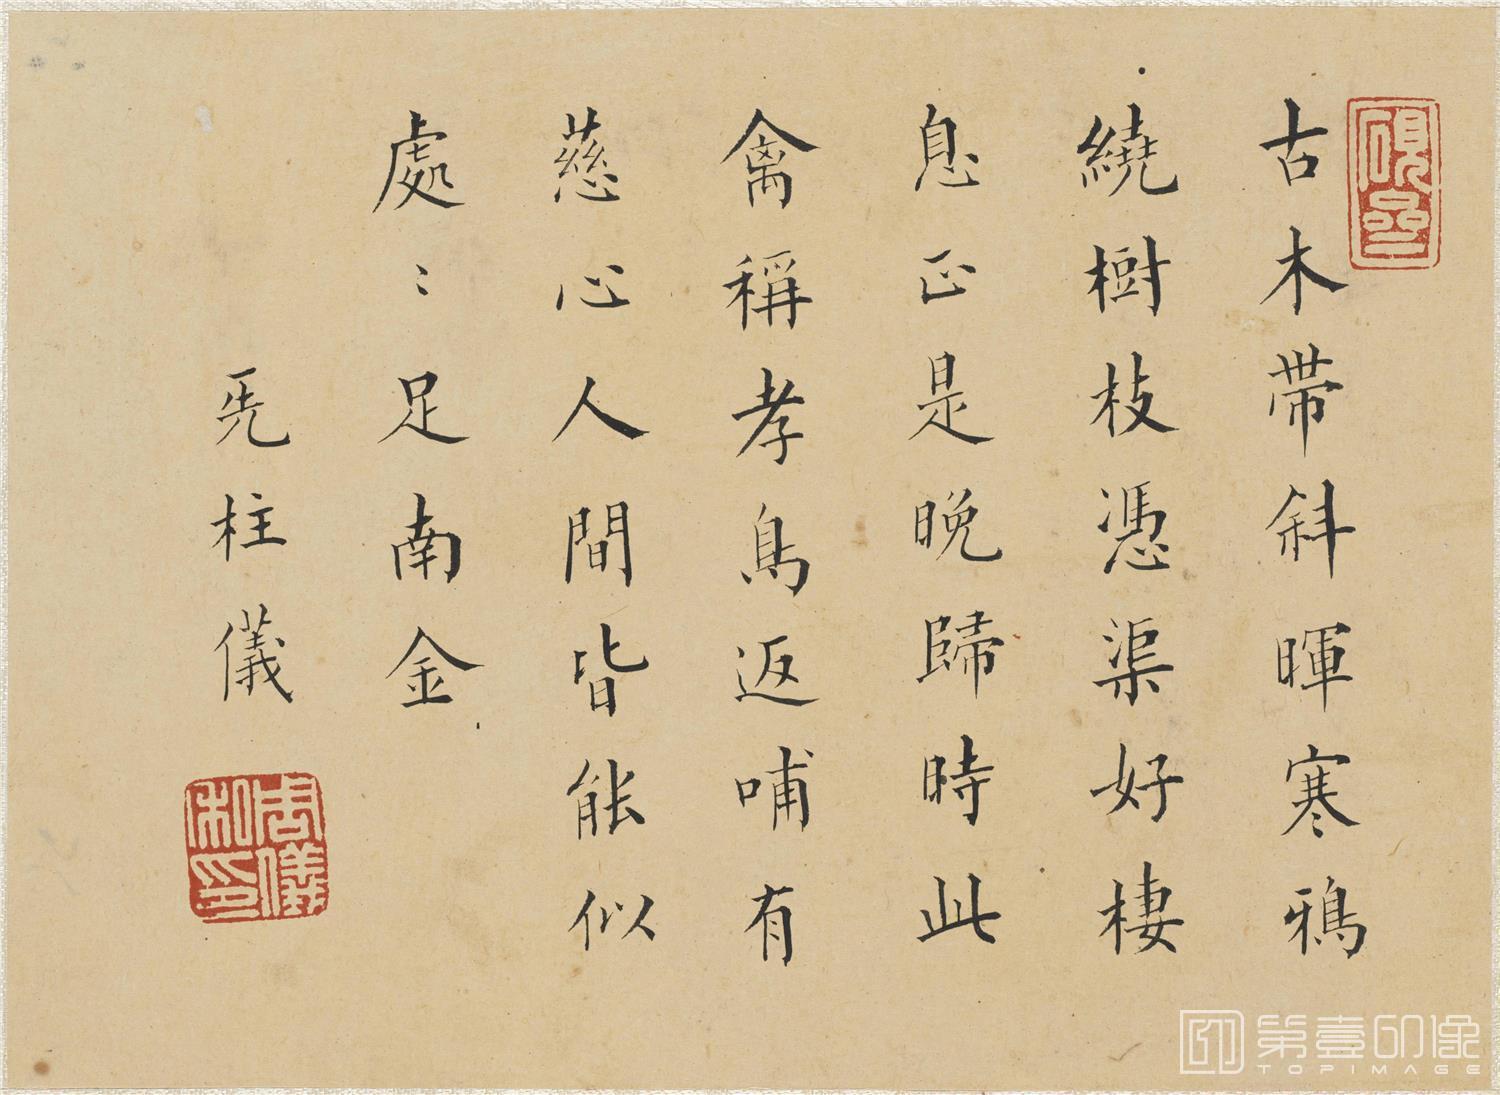 古木帶斜暉寒鴉
繞樹枝憑渠好棲
息正是晚歸時此
禽稱孝鳥返哺有
慈心人間皆能似
處〻足南金
旡柱儀
周儀
私印
第壹印像
TOPIMAGE